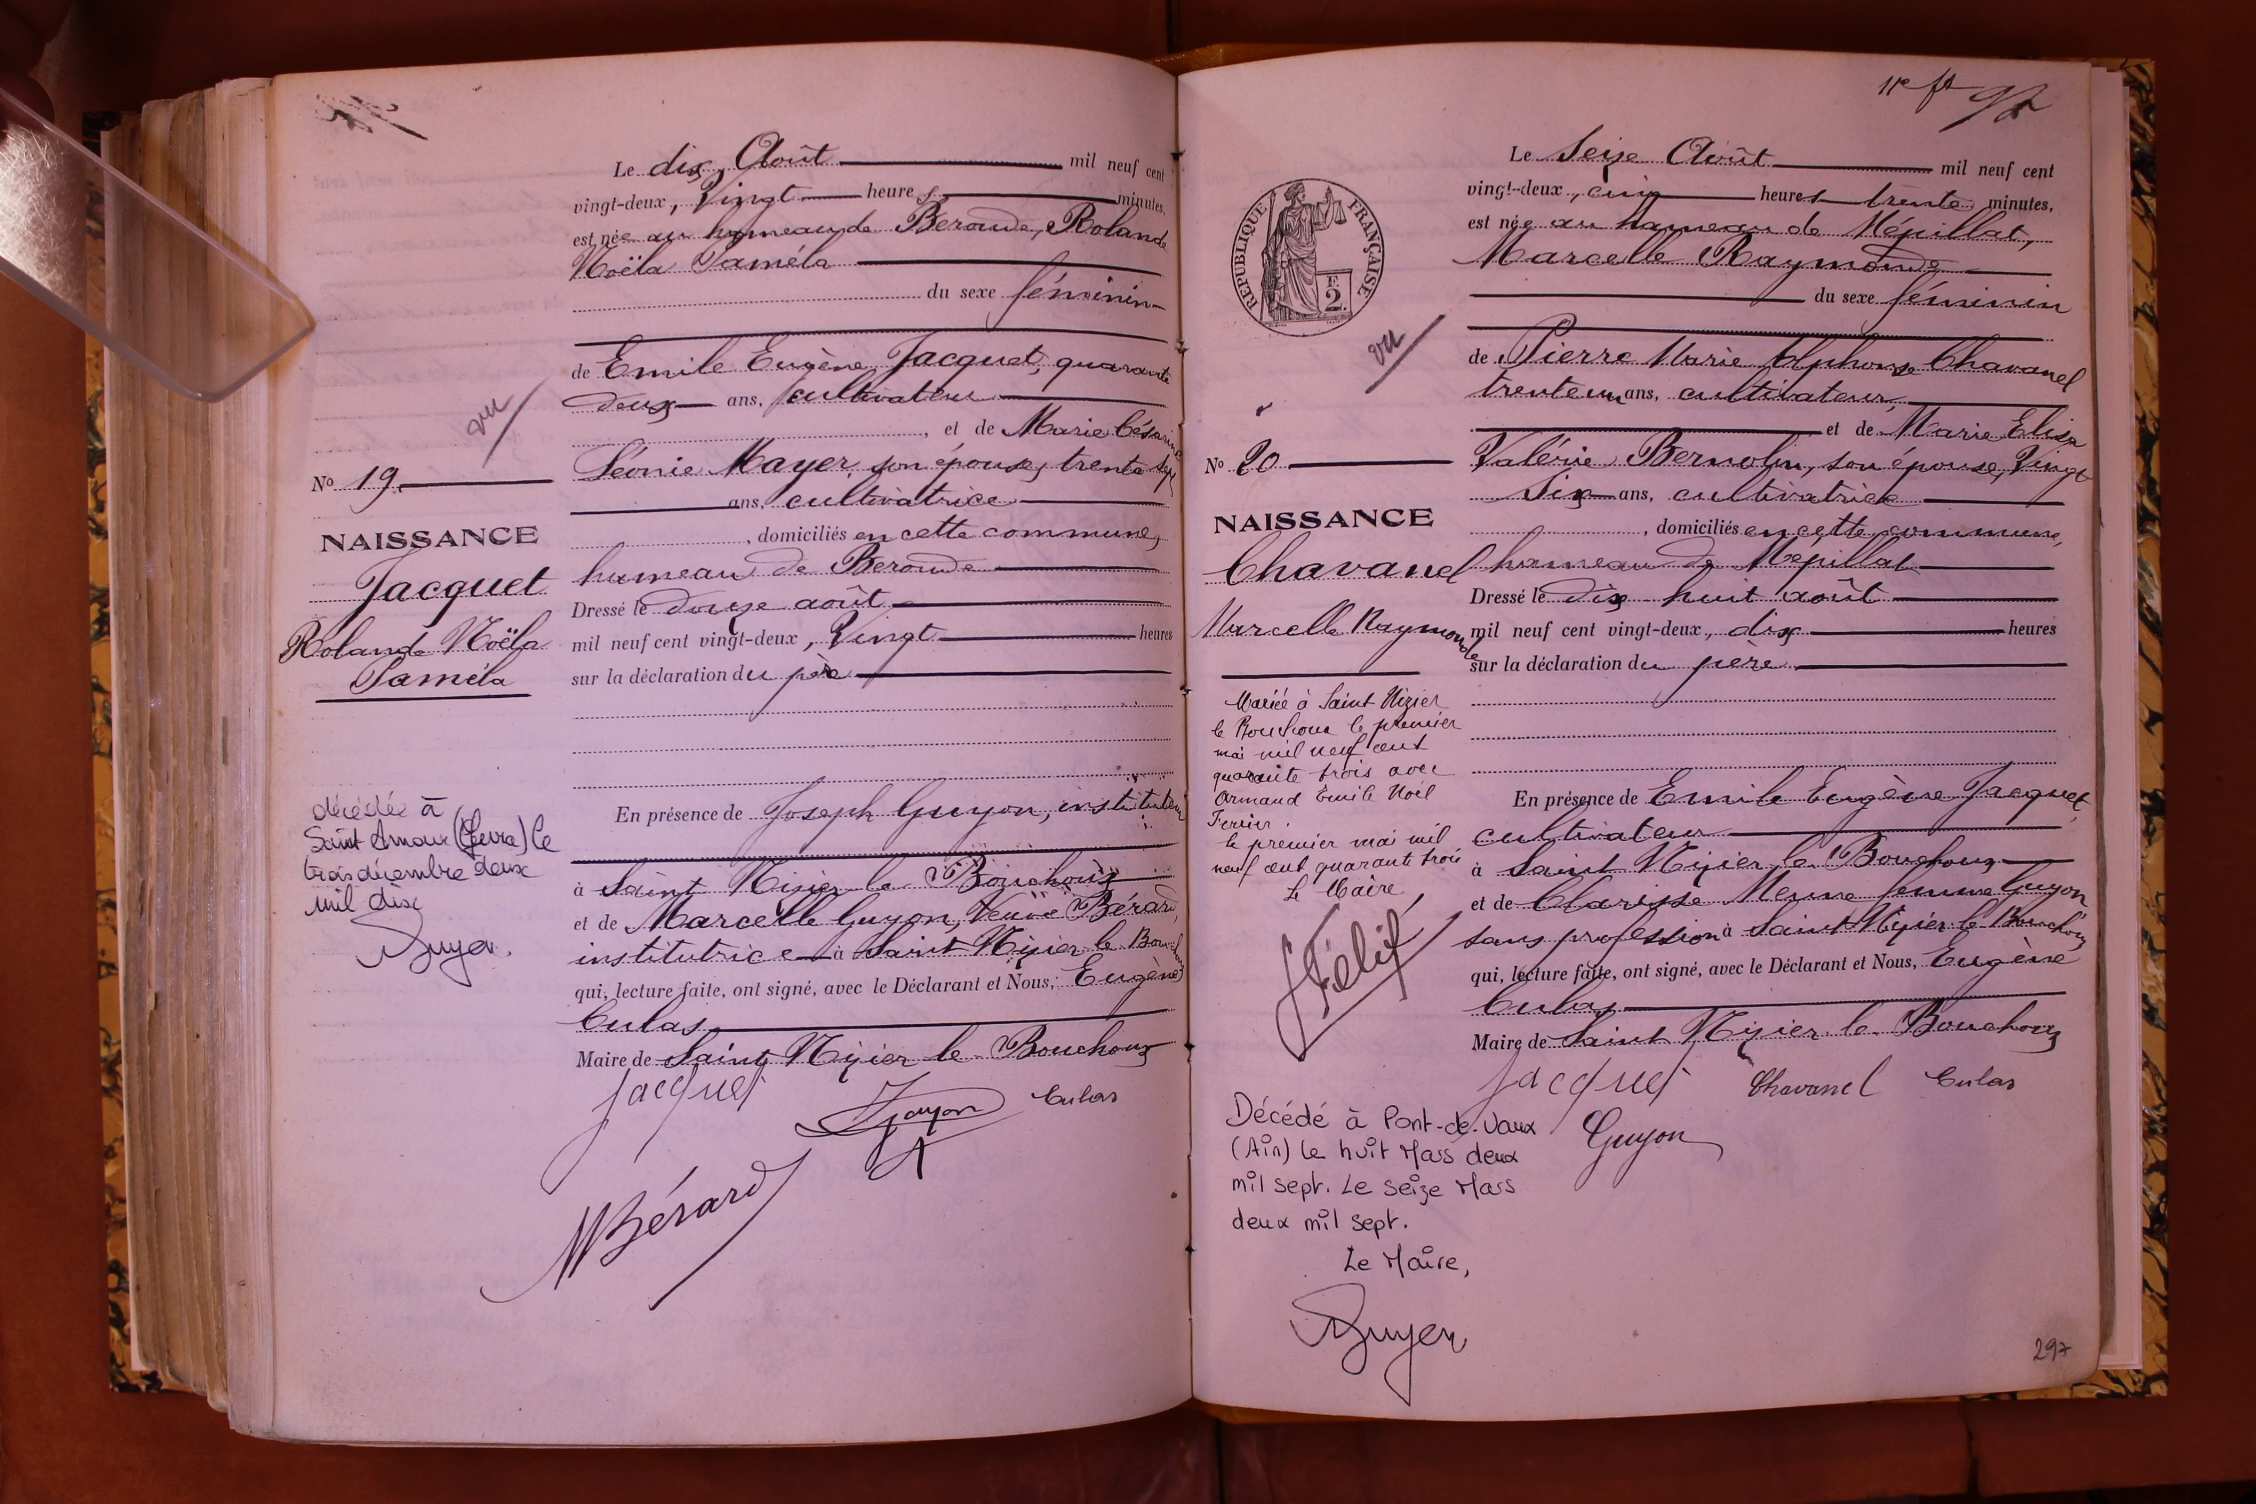 Le dix Août mil neuf cent
vingt-deux, Vingt heures minutes,
est née au hameau de Beroude, Rolande
Noëla Paméla
du sexe féminin
de Emile Eugène Jacquet, quarante
deux ans, cultivateur
, et de Marie Césarine
Léonie Mayer, son épouse, trente sept
ans, cultivatrice
, domiciliés en cette commune,
hameau de Beroude
Dressé le douze août
mil neuf cent vingt-deux, Vingt heures
sur la déclaration du père
En présence de Joseph Guyon, instituteur
à Saint Nizier le Bouchoux
et de Marcelle Guyon, Veuve Bérard,
institutrice à Saint Nizier le Bouchoux
qui, lecture faite, ont signé, avec le Déclarant et Nous, Eugène
Culas
Maire de Saint Nizier le Bouchoux
Jacquet
Guyon
Culas
MBérard
vu
No 19
NAISSANCE
Jacquet
Rolande Noëla
Paméla
décédée à
Saint Amour (Jura) le
trois décembre deux
mil dix
11e ft
Le Seize Août mil neuf cent
vingt-deux, cinq heures trente minutes,
est née au hameau de Mépillat,
Marcelle Raymonde
du sexe féminin
de Pierre Marie Alphonse Chavanel
trente un ans, cultivateur,
et de Marie Elisa
Valérie Bernolin, son épouse, Vingt
Six ans, cultivatrice
, domiciliés en cette commune,
hameau de Mépillat
Dressé le dix huit août
mil neuf cent vingt-deux, dix heures
sur la déclaration du père
En présence de Emile Eugène Jacquet,
cultivateur
à Saint Nizier le Bouchoux
et de Clarisse Meune femme Guyon
sans profession à Saint Nizier le Bouchoux
qui, lecture faite, ont signé, avec le Déclarant et Nous, Eugène
Culas
Maire de Saint Nizier le Bouchoux
Jacquet Chavanel Culas
Guyon
REPUBLIQUE FRANÇAISE
F.
2.
vu
No 20
NAISSANCE
Chavanel
Marcelle Raymonde
Mariée à Saint Nizier
le Bouchoux le premier
mai mil neuf cent
quarante trois avec
Armand Emile Noël
Ferrier.
le premier mai mil
neuf cent quarante trois
Le Maire
Félix
Décédé à Pont-de-Vaux
(Ain) le huit Mars deux
mil sept. Le seize Mars
deux mil sept.
Le Maire,
297